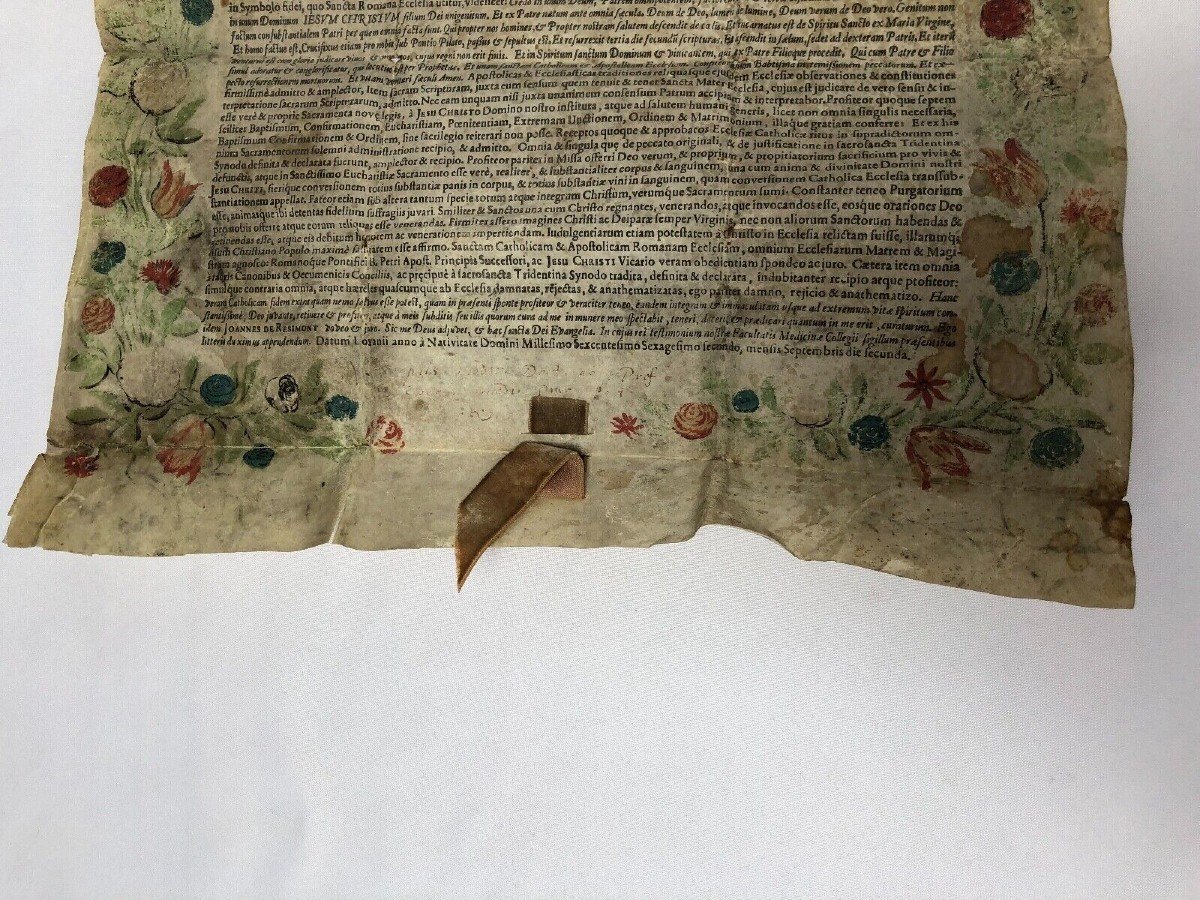 in Symbolo fidei, quo Sancta Romana Ecclesia utitur, videlicet: Credo in unum Deum, Patrem omnipotentem,
in unum Dominum IESVM CHRISTVM filium Dei unigenitum. Et ex Patre natum ante omnia sæcula. Deum de Deo, lumen de lumine, Deum verum de Deo vero. Genitum non
factum consubstantialem Patri per quem omnia facta sunt. Qui propter nos homines, & Propter nostram salutem descendit de cælis. Et incarnatus est de Spiritu Sancto ex Maria Virgine,
Et homo factus est, Crucifixus etiam pro nobis sub Pontio Pilato, passus & sepultus est. Et resurrexit tertia die secundū scripturas, Et ascendit in cælum, sedet ad dexteram Patris, Et iterū
venturus est cum gloria judicare vivos & mortuos, cujus regni non erit finis. Et in Spiritum sanctum Dominum & vivicantem, qui ex Patre Filioque procedit, Qui cum Patre & Filio
simul adoratur & conglorificatur, qui locutus est per Prophetas. Et unam sanctam Catholicam & Apostolicam Ecclesiam. Confiteor unum Baptisma in remissionem peccatorum. Et ex-
pecto resurrectionem mortuorum. Et vitam venturi sæculi Amen. Apostolicas & Ecclesiasticas traditiones reliquasque ejusdem Ecclesiæ observationes & constitutiones
firmissimè admitto & amplector, Item sacram Scripturam, juxta eum sensum quem tenuit & tenet Sancta Mater Ecclesia, cujus est judicare de vero sensu & in-
terpretatione sacrarum Scripturarum, admitto. Nec eam unquam nisi juxta unanimem consensum Patrum accipiam & interpretabor. Profiteor quoque septem
esse verè & propriè Sacramenta novæ legis, à JESU CHRISTO Domino nostro instituta, atque ad salutem humani generis, licet non omnia singulis necessaria,
scilicet Baptismum, Confirmationem, Eucharistiam, Pœnitentiam, Extremam Unctionem, Ordinem & Matrimonium, illaque gratiam conferre: Et ex his
Baptismum Confirmationem & Ordinem, sine sacrilegio reiterari non posse. Receptos quoque & approbatos Ecclesiæ Catholicæ ritus in supradictorum om-
nium Sacramentorum solemni administratione recipio, & admitto. Omnia & singula quæ de peccato originali, & de justificatione in sacrosancta Tridentina
Synodo definita & declarata fuerunt, amplector & recipio. Profiteor pariter in Missa offerri Deo verum, & proprium, & propitiatorium sacrificium pro vivis &
defunctis, atque in Sanctissimo Eucharistiæ Sacramento esse verè, realiter, & substantialiter corpus & sanguinem, una cum anima & divinitate Domini nostri
JESU CHRISTI, fierique conversionem totius substantiæ panis in corpus, & totius substātiæ vini in sanguinem, quam conversionem Catholica Ecclesia transub-
stantiationem appellat. Fateor etiam sub altera tantum specie totum atque integrum Christum, verumque Sacramentum sumi. Constanter teneo Purgatorium
esse, animasque ibi detentas fidelium suffragiis juvari. Similiter & Sanctos una cum Christo regnantes, venerandos, atque invocandos esse, eosque orationes Deo
pro nobis offerre atque eorum reliquias esse venerandas. Firmiter assero imagines Christi ac Deiparæ semper Virginis, nec non aliorum Sanctorum habendas &
retinendas esse, atque eis debitum honorem ac venerationem impertiendam. Indulgentiarum etiam potestatem à Christo in Ecclesia relictam fuisse, illarumq;
usum Christiano Populo maximè salutarem esse affirmo. Sanctam Catholicam & Apostolicam Romanam Ecclesiam, omnium Ecclesiarum Matrem & Magi-
stram agnosco: Romanoque Pontifici B. Petri Apost. Principis Successori, ac JESU CHRISTI Vicario veram obedientiam spondeo ac juro. Cætera item omnia
à sacris Canonibus & Oecumenicis Conciliis, ac præcipuè à sacrosancta Tridentina Synodo tradita, definita & declarata, indubitanter recipio atque profiteor:
simulque contraria omnia, atque hæreses quascumque ab Ecclesia damnatas, rejectas, & anathematizatas, ego pariter damno, rejicio & anathematizo. Hanc
veram Catholicam fidem extra quam nemo salvus esse potest, quam in præsenti sponte profiteor & veraciter teneo, eandem integram & immaculatam usque ad extremum vitæ spiritum con-
stantissimè, Deo juvante, retinere & profiteri, atque à meis subditis seu illis quorum cura ad me in munere meo spectabit, teneri, doceri, & prædicari quantum in me erit, curaturum. Ego
idem JOANNES DE RESIMONT voveo & juro. Sic me Deus adjuvet, & hæc sancta Dei Evangelia. In cujus rei testimonium nostræ Facultatis Medicinæ Collegii sigillum præsentibus
litteris duximus appendendum. Datum Lovanii anno à Nativitate Domini Millesimo Sexcentesimo Sexagesimo secundo, mensis Septembris die secunda.